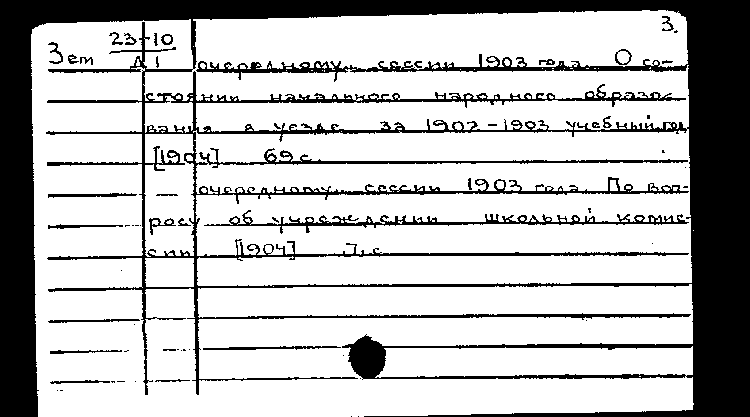 3.
Зем 23-10
Д 1 очередному сессии 1903 года. О со-
стоянии начального народного образо-
вания в уезде за 1902-1903 учебный год
[1904] 69 с.
— очередному сессии 1903 года. По воп-
росу об учреждении школьной комис-
сии [1904] с.